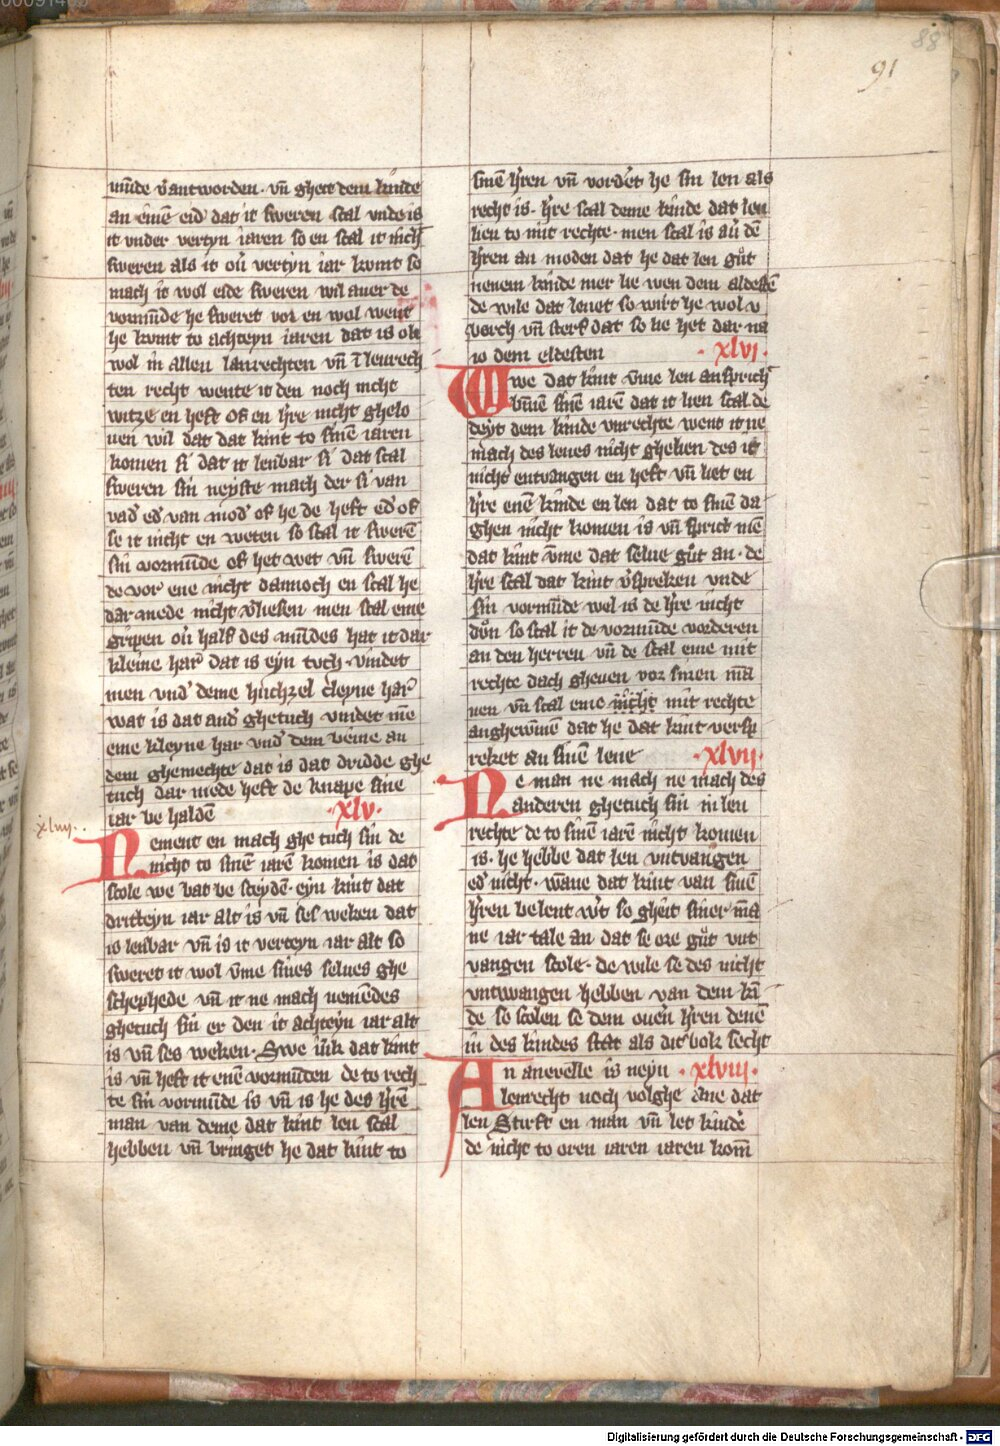 88
91
mu̅de v̓antworden· vn̅ gheit dem kinde
an eine̅ eid dat it sweren scal vnde is
it vnder vertyn iaren so en scal it nich
sweren als it ou̓ vertyn iar komt so
mach it wol eide sweren wil auer de
vormu̅de he sweret vor en wol went
he komt to achteyn iaren dat is ok
wol in allen lantrechten vn̅ i̅ lenrech
ten recht wente it den noch nicht
witze en heft of en h̓re nicht ghelo
uen wil dat dat kint to sine̅ iaren
komen si dat it lenbar si dat scal
sweren sin neyste mach der si van
vad̓ ed̓ van mod̓ of he de heft ed̓ of
se it nicht en weten so scal it swere̅
sin vormu̅de of het wet vn̅ swere̅
de vor ene nicht dannoch en scal he
dar mede nicht v̓liesen men scal eme
gripen ou̓ half des mu̅des hat it dar
kleine har̓ dat is eyn tuch· vindet
men vnd̓ deme huchzel cleyne har̓
wat is dat and̓ ghetuch vindet me̅
eme kleyne har vnd̓ dem beine an
dem ghemechte dat is dat dridde ghe
tuch dar mede heft de knape sine
iar be halde̅ ·xlv·
xlvij··
Nement en mach ghe tuch sin de
nicht to sine̅ iare̅ komen is dat
scole we bat be sceyde̅· eyn kint dat
dritteyn iar alt is vn̅ ses weken dat
is lenbar vn̅ is it verteyn iar alt so
sweret it wol v̅me sines selues ghe
schephede vn̅ it ne mach neme̅des
ghetuch sin er den it achteyn iar alt
is vn̅ ses weken· Swe iu̅k dat kint
is vn̅ heft it ene̅ vormu̅den de to rech
te sin vormu̅de is vn̅ is he des h̓re̅
man van deme dat kint len scal
hebben vn̅ bringet he dat kint to
sine̅ h̓ren vn̅ vord̓et he sin len als
recht is· h̓re scal deme kinde dat len
lien to mit rechte· men scal is au̓ de̅
h̓ren an moden dat he dat len gu̓t
nenem kinde mer lie wen dem aldesten
de wile dat leuet so wirt he wol v
borch vn̅ sterf dat so lie het dar na
io dem eldesten ·xlvi·
Swe dat kint v̅me lenansprich
bi̅ne̅ sine̅ iare̅ dat it lien scal de
deyt dem kinde vnrechte went it ne
mach des lenes nicht ghelien des it
nicht entvangen en heft vn̅ liet en
h̓re ene̅ kinde en len dat to sine̅ da
ghen nicht komen is vn̅ sprict me̅
dat kint v̅me dat selue gu̓t an· de
h̓re scal dat kint v̓spreken vnde
sin vormu̅de wel is de h̓re nicht
du̓n so scal it de vormu̅de vorderen
an den herren vn̅ de scal eme mit
rechte dach gheuen vor sinen ma̅
nen vn̅ scal eme nicht mit rechte
anghewi̅nen dat he dat kint versp
reket an sine̅ lene ·xlvij·
Ne man ne mach ne mach des
anderen ghetuch sin in len
rechte de to sine̅ iare̅ nicht komen
is· he hebbe dat len vntvangen
ed̓ nicht· wa̅ne dat kint van sine̅
h̓ren belent w̓t so gheit siner ma̅
ne iar tale an dat se ore gu̓t vnt
vangen scole· de wile se des nicht
vntwangen hebben van dem ki̅
de so scolen se dem ouen̓ h̓ren dene̅
in des kindes stat als dit bok secht
An anevelle is neyn ·xlviij·
lenrecht noch volghe ane dat
len Stirft en man vn̅ let kinde̓
de nicht to oren iaren iaren kom̅
Digitalisierung gefördert durch die Deutsche Forschungsgemeinschaft - DFG